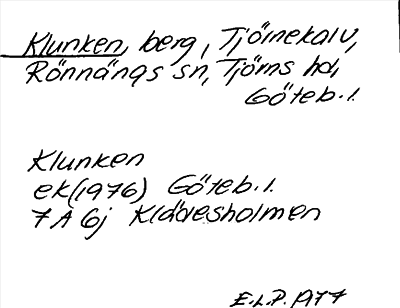 Klunken, berg, Tjörnekalv,
Rönnängs sn, Tjörns hd,
Göteb. l.
Klunken
ek (1976) Göteb. l.
7 A 6j Klädesholmen
E.L.P. 1977